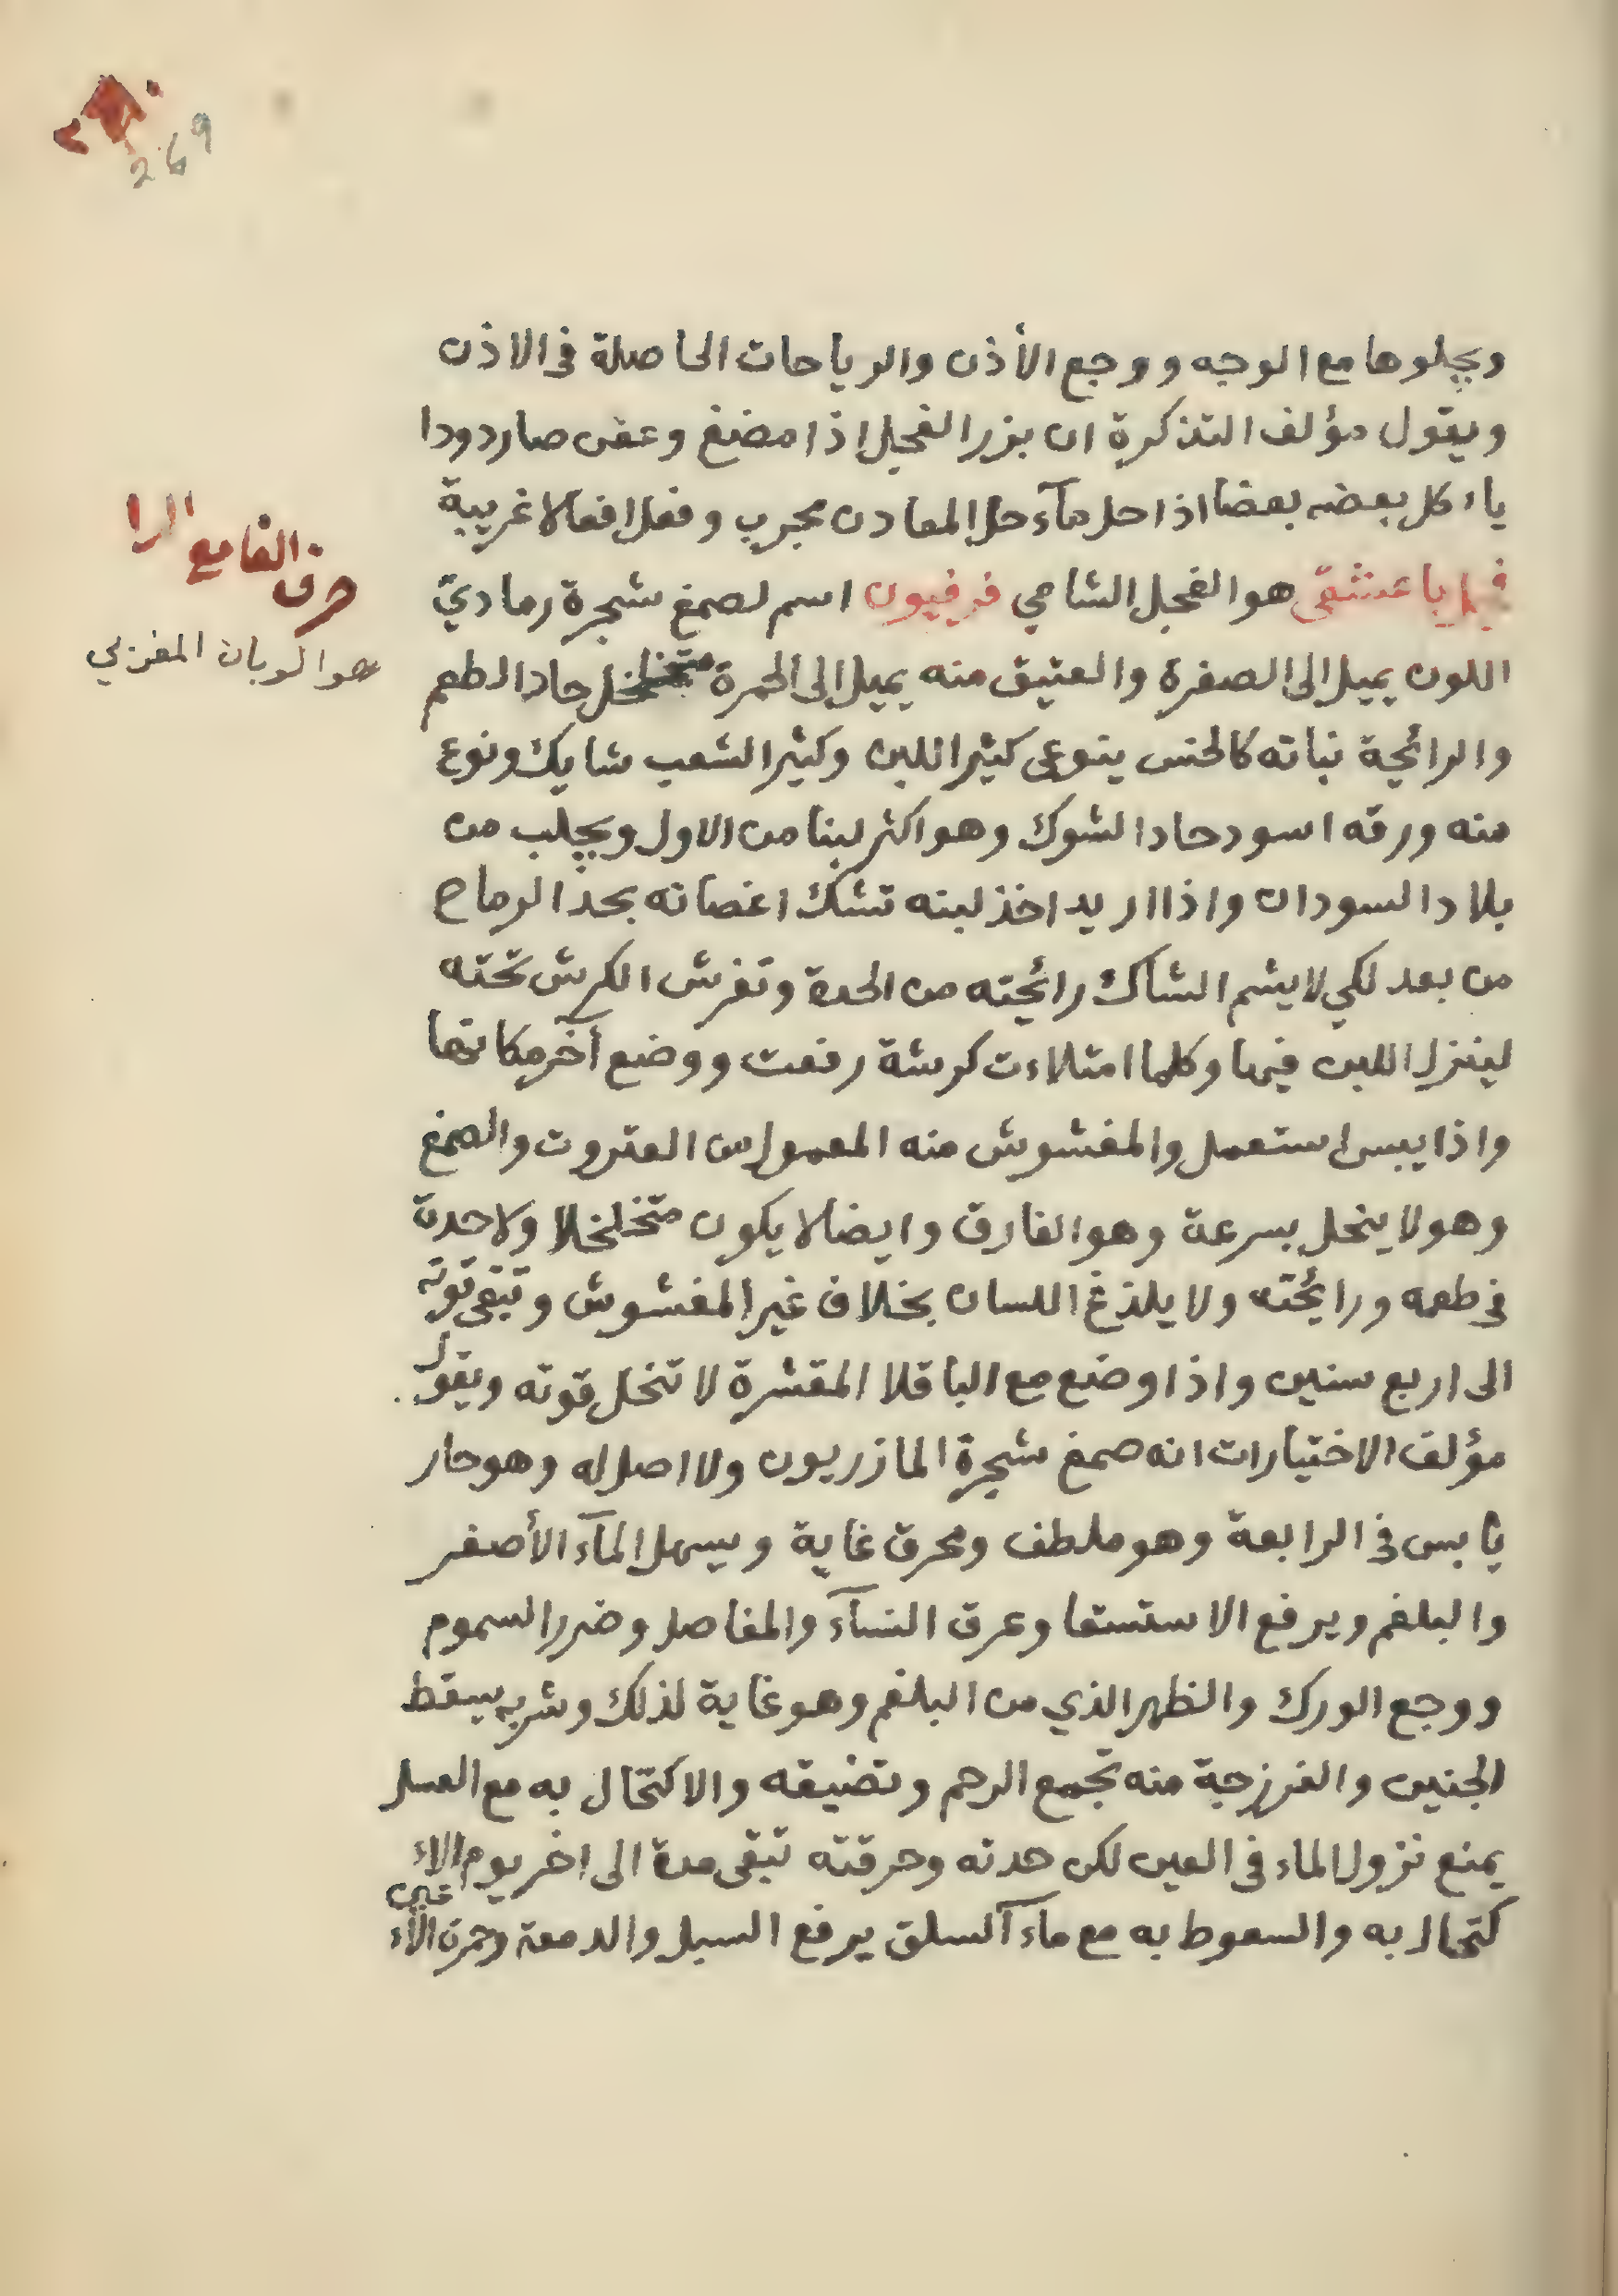 269
ويجلوها مع الوجه ووجع الأذن والرياحات الحاصلة في الاذن
ويقول مؤلف التذكرة ان بزر الفجل اذا مضغ وعفن صار دودا
ياءكل بعضه بعضا اذا حل مآء حل المعادن مجرب وفعل افعالا غريبة
هو الفجل الشامي فرفيون اسم لصمغ شجرة رماديّ
حرف الفا مع الرا
هو اللوبان المغربي
اللون يميل الى الصفرة والعتيق منه يميل الى الحمرة متخلخل حاد الطعم
والرائحة نباته كالخس يتوعي كثير اللبن وكثير الشعب شايك ونوع
منه ورقه اسود حاد الشوك وهو اكثر لبنا من الاول ويجلب من
بلاد السودان واذا اريد اخذ لبنه تشك اغصانه بحد الرماح
من بعد لكي لا يشم الشاك رائحته من الحدة وتفرش الكرش تحته
لينزل اللبن فيها وكلما امتلاءت كرشة رفعت ووضع آخر مكانها
واذا يبس استعمل والمغشوش منه المعمول من العتروت والصمغ
وهو لا ينحل بسرعة وهو الفارق وايضا لا يكون متخلخلا ولا حدة
في طعمه ورائحته ولا يلذغ اللسان بخلاف غير المغشوش وتبقى قوته
الى اربع سنين واذا وضع مع الباقلا المقشرة لا تنحل قوته ويقول
مؤلف الاختيارات انه صمغ شجرة المازريون ولا اصل له وهو حار
يابس في الرابعة وهو ملطف ومحرق غاية ويسهل المآء الأصفر
والبلغم ويرفع الاستسقا وعرق النسآء والمفاصل وضرر السموم
ووجع الورك والظهر الذي من البلغم وهو غاية لذلك وشربه يسقط
الجنين والفرزجة منه تجمع الرحم وتضيقه والاكتحال به مع العسل
يمنع نزول الماء في العين لكن حدته وحرقته تبقى مدة الى اخر يوم الاء
كتحال به والسعوط به مع مآء السلق يرفع السبل والدمعة وحمرة الاء